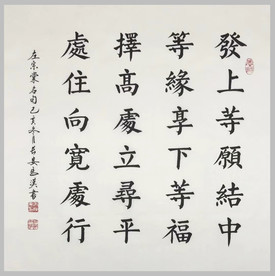 發上等願結中
等緣享下等福
擇高處立尋平
處住向寬處行
左宗棠名句己亥冬月